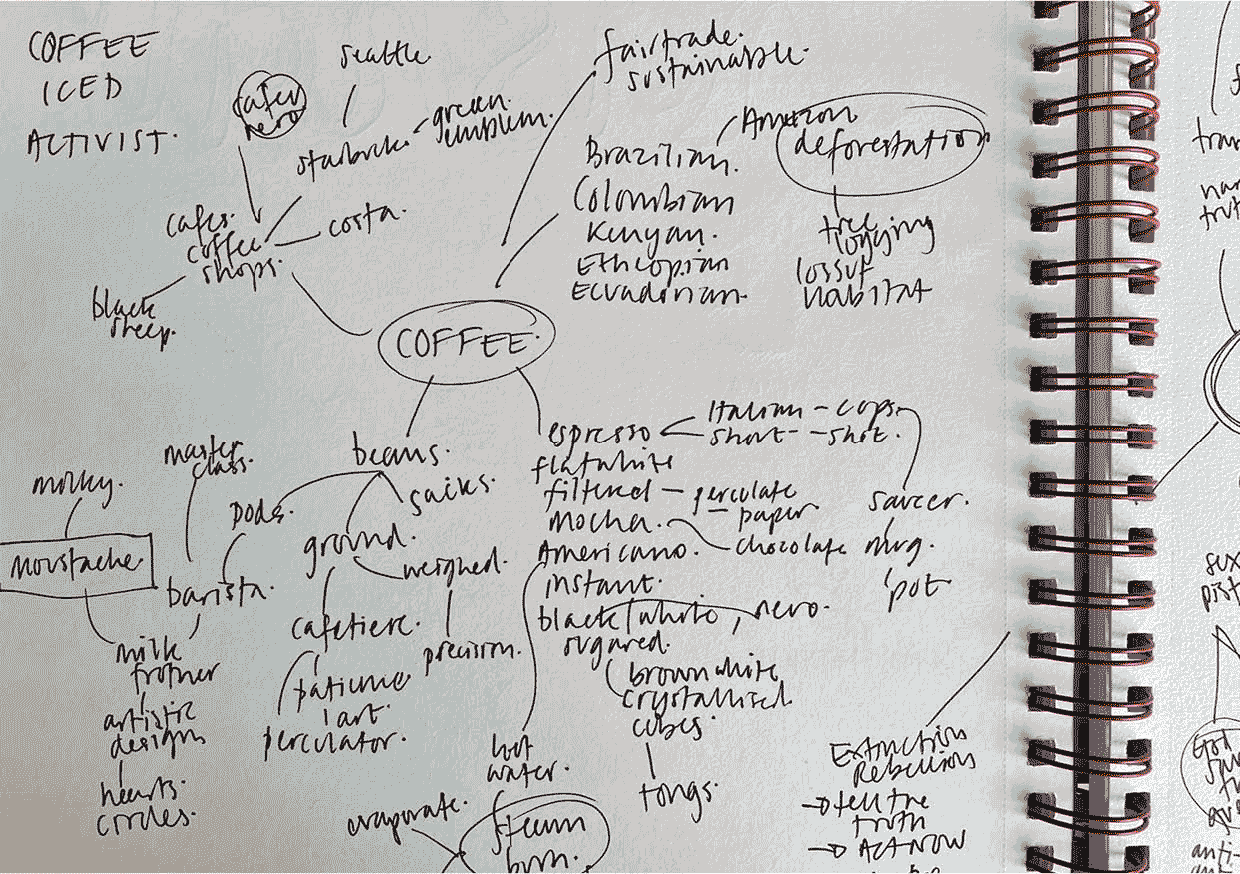 COFFEE
ICED
ACTIVIST.
seattle.
cafer
nero
starbucks.
green
emblem.
cafes.
coffee
shops.
costa.
black
sheep.
fairtrade.
sustainable.
Amazon
deforestation
tree
logging
loss of
habitat
Brazilian.
Colombian
Kenyan.
Ethiopian
Ecuadorian.
COFFEE.
beans.
sacks.
pods.
ground.
weighed.
precision.
cafetiere.
patience
art.
perculator.
master
class.
barista.
milky.
moustache.
milk
frother
artistic
designs
hearts.
circles.
espresso
Italian - cops.
short - shot.
flatwhite
filtered - perculate
- paper
mocha.
chocolate
Americano.
instant.
black/white, nero.
sugared.
brown white
crystallised
cubes.
tongs.
saucer.
mug.
pot
hot
water.
evaporate.
steam
burn.
Extinction
Rebellion
→ tell the
truth
→ ACT NOW
tran
truth
sex
pist
anti-